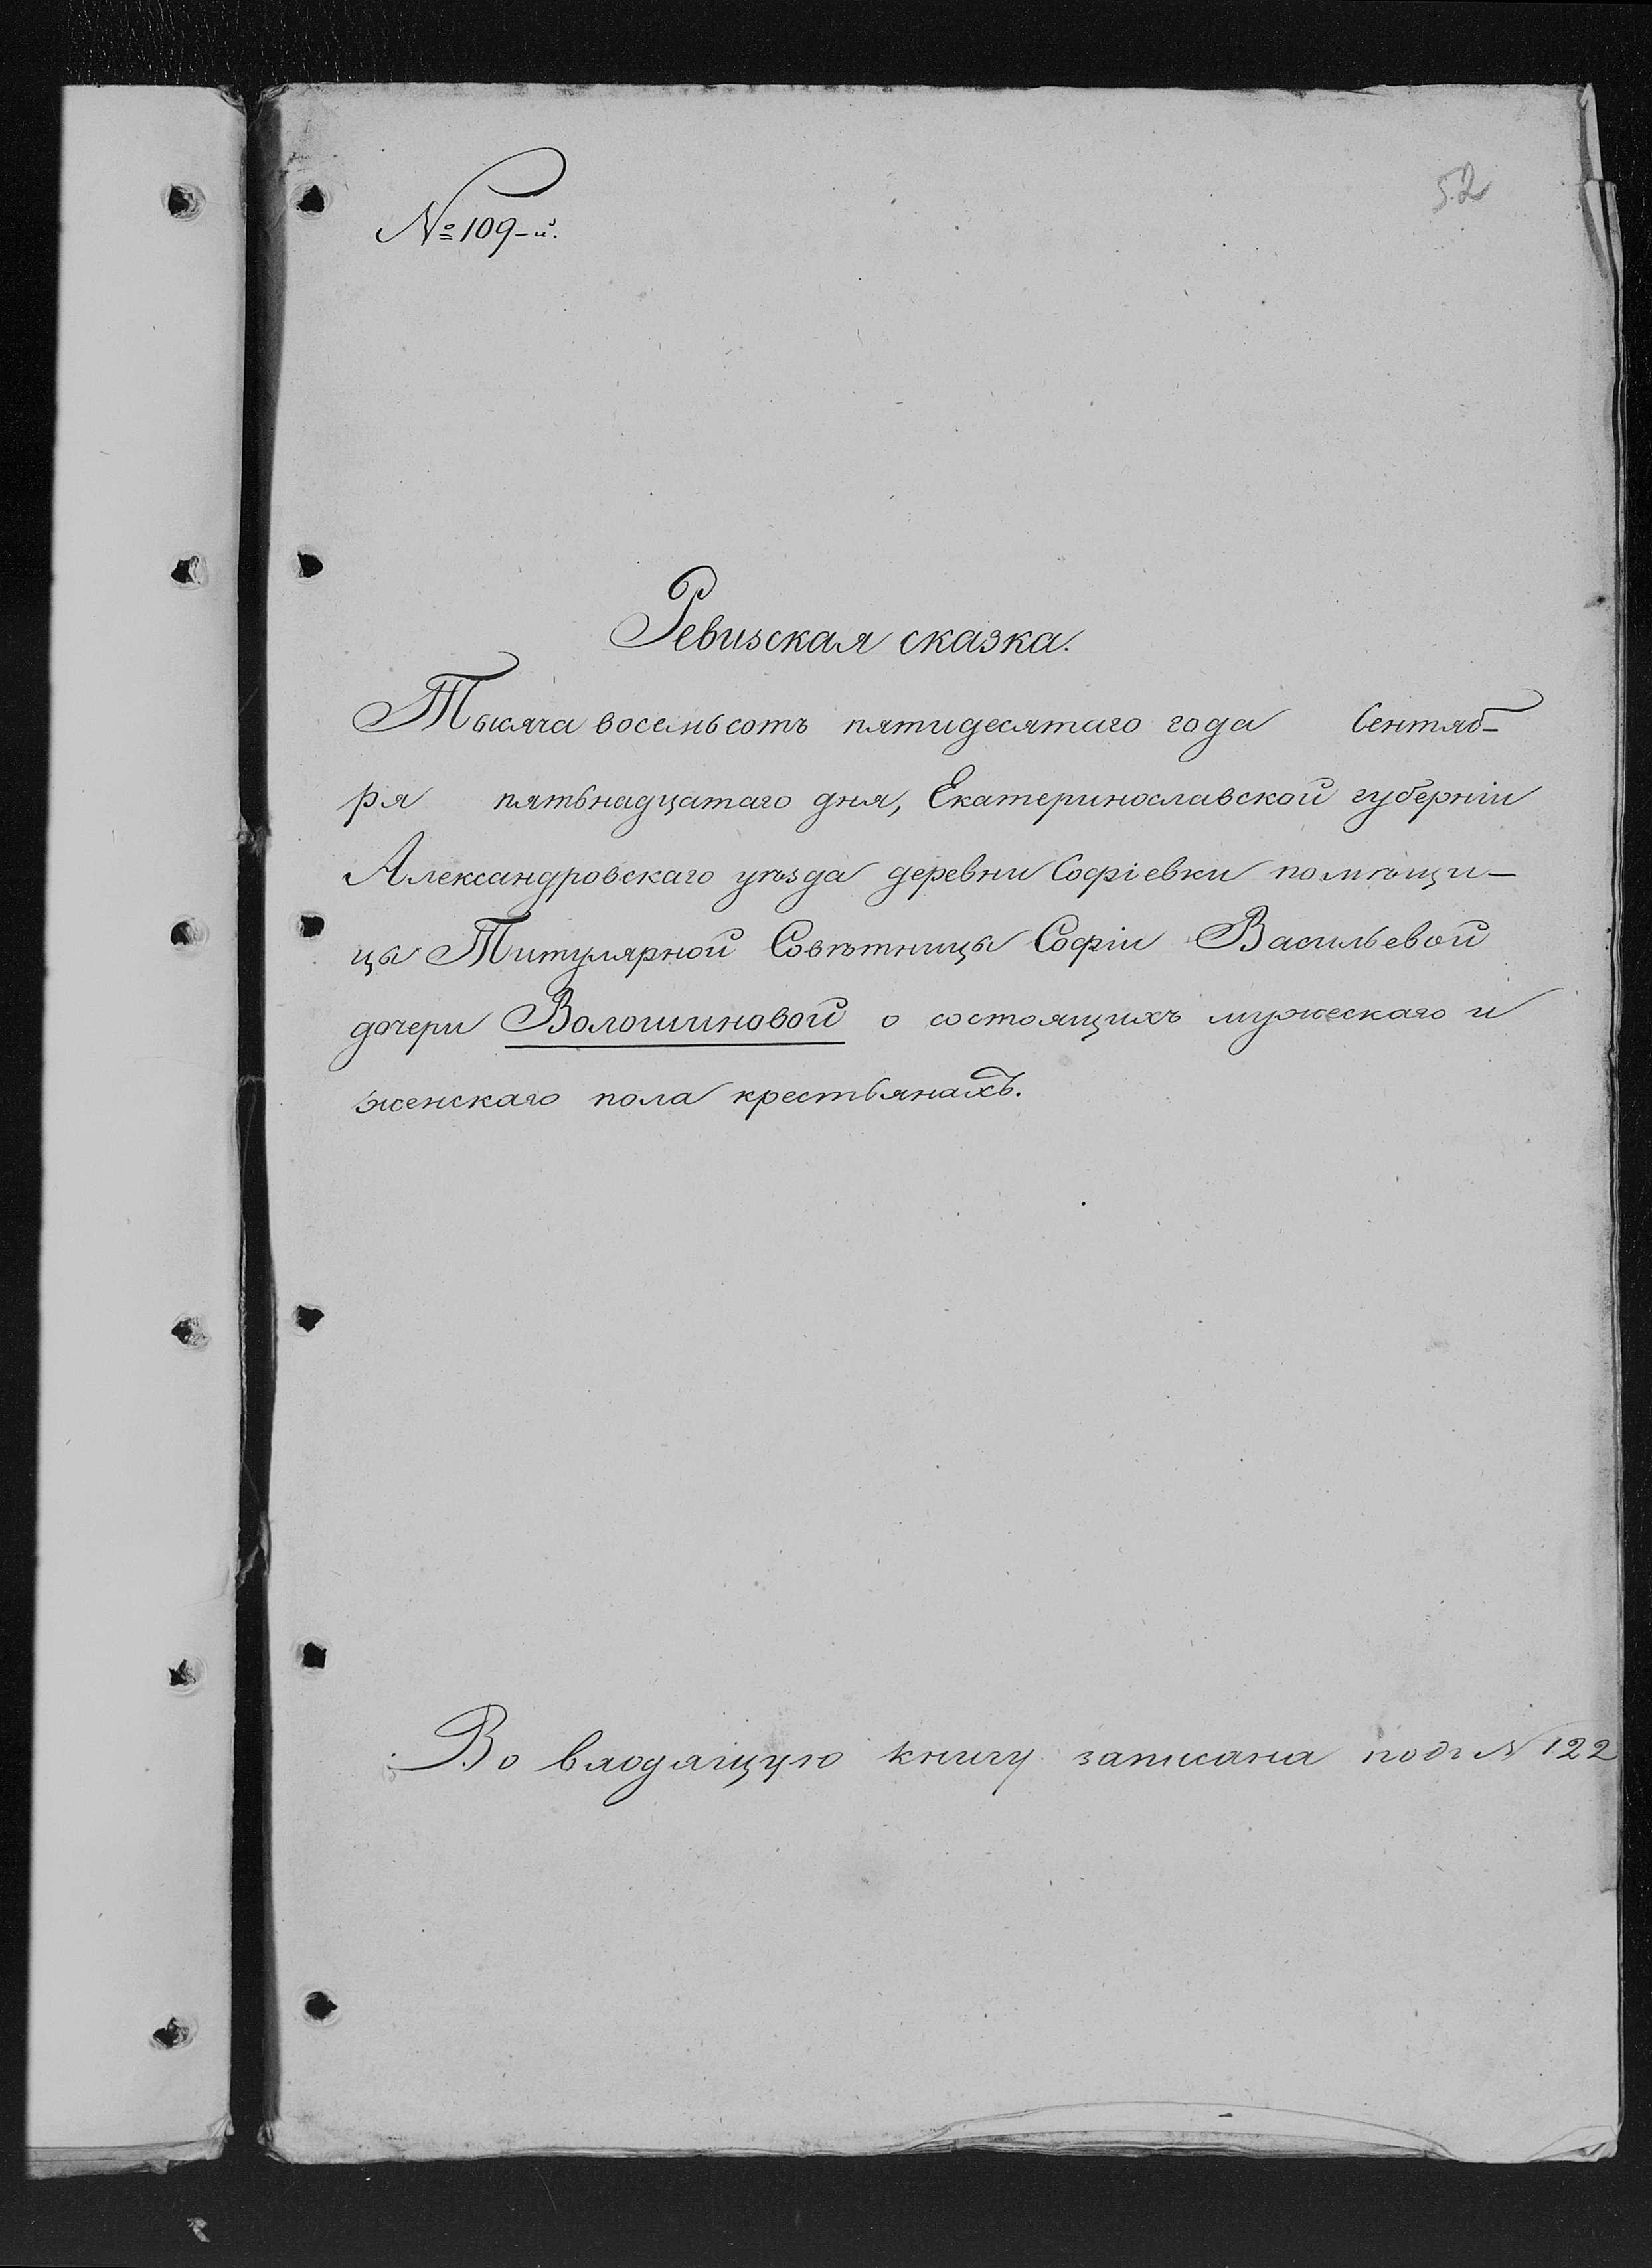 52
№ 109-й.
Ревизская сказка.
Тысяча восемьсотъ пятидесятаго года Сентяб-
ря пятьнадцатаго дня, Екатеринославской губерніи
Александровскаго уѣзда деревни Софіевки помѣщи-
цы Титулярной Совѣтницы Софіи Васильевой
дочери Волошиновой о состоящихъ мужескаго и
женскаго пола крестьянахъ.
Во входящую книгу записана подъ № 122